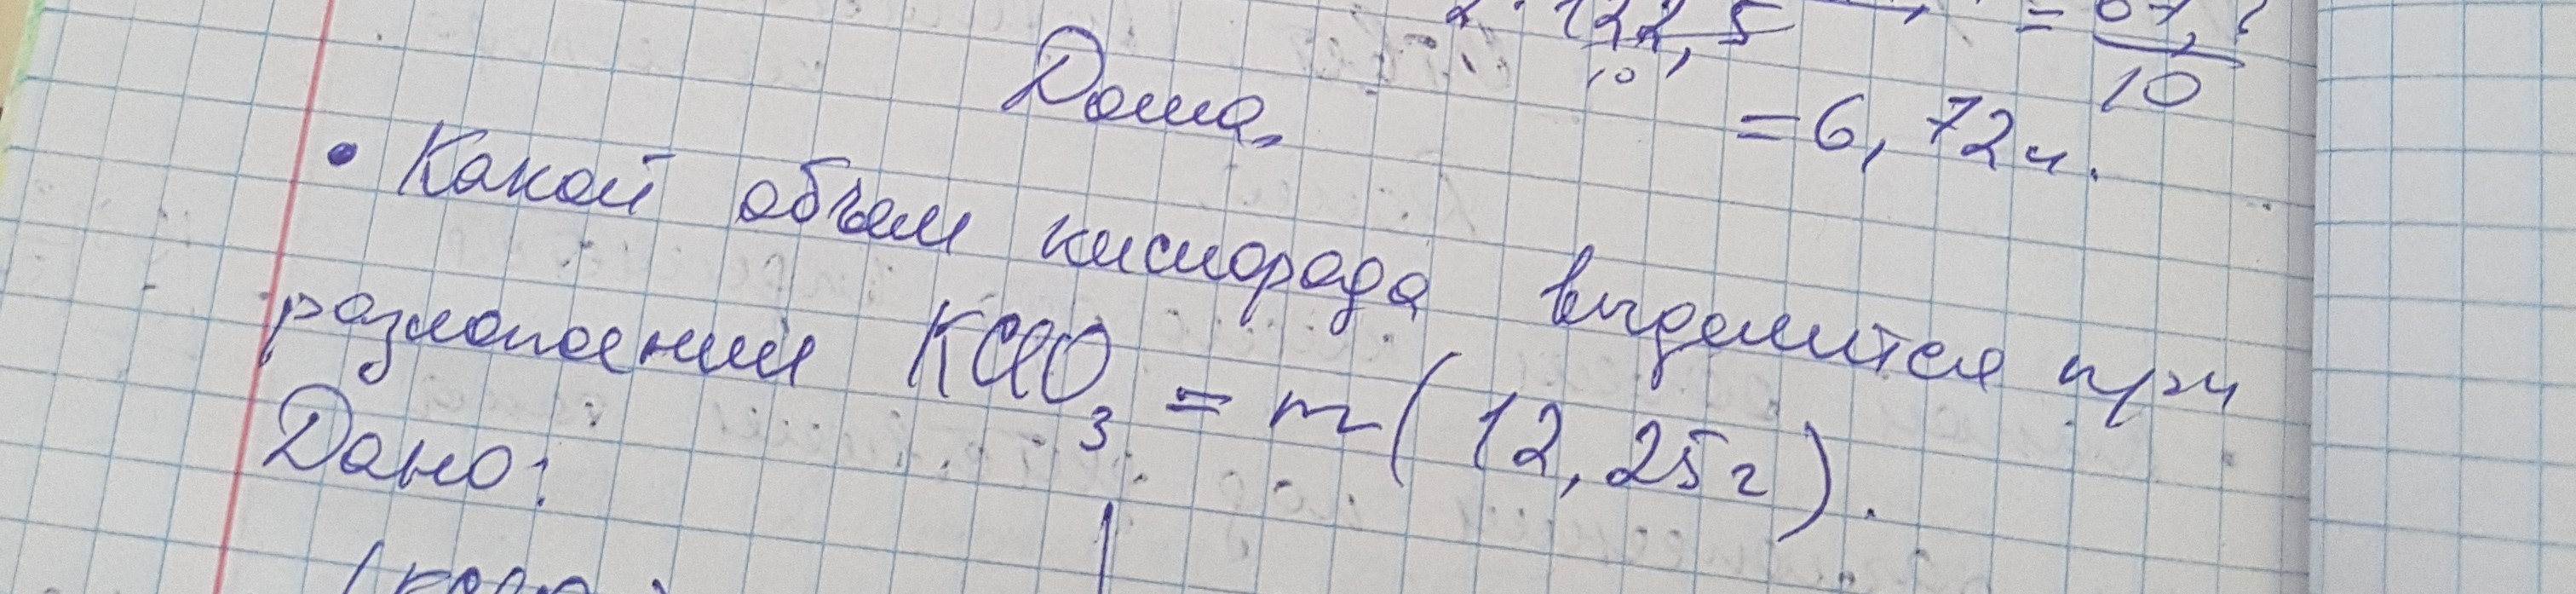 2 · 122,5 = 67,2
10 10
Дома. = 6,72 л.
• Какой объем кислорода выделится при
разложении KClO3 = m (12,25 г).
Дано: